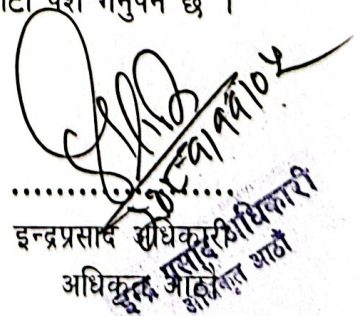 पेश गर्नुपर्ने छ ।
इन्द्रप्रसाद अधिकारी
अधिकृत आठौं
इन्द्र प्रसाद अधिकारी
अधिकृत आठौं